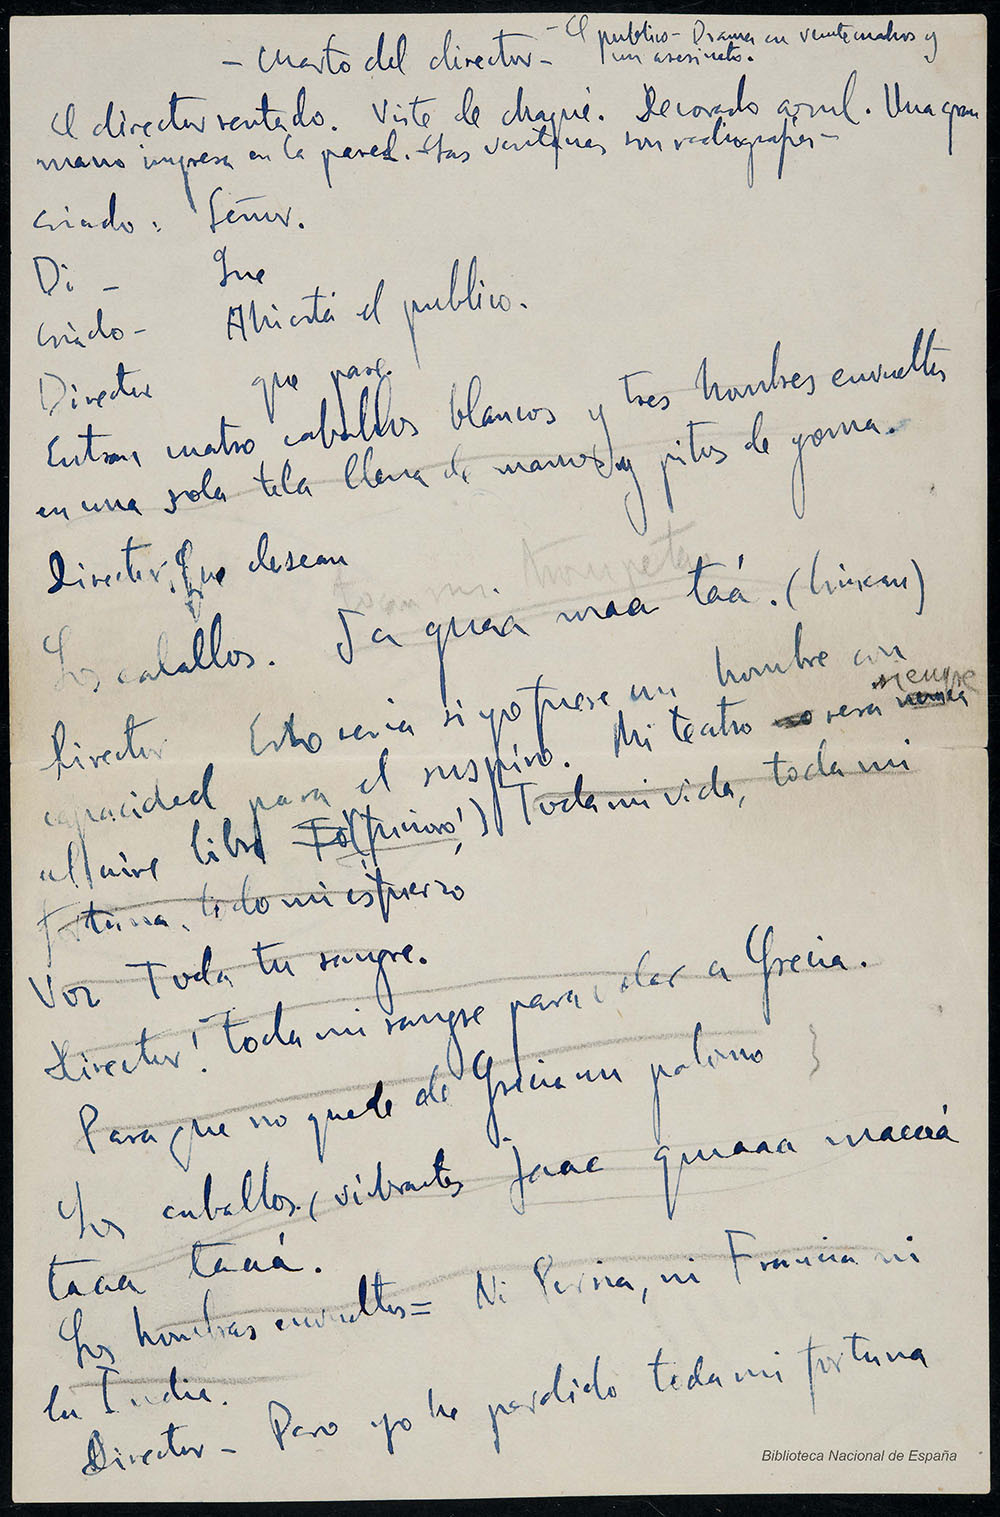 - El publico - Drama en veinte cuadros y
un asesinato.
- Cuarto del director -
El director sentado. Viste de chaqué. Decorado azul. Una gran
mano impresa en la pared. Las ventanas son radiografias -
Criado: Señor.
Di - Que
Criado - Ahi está el publico.
Director que pase.
Entran cuatro caballos blancos y tres hombres envueltos
en una sola tela llena de manos y pitos de goma.
Director. Que desean
tocan sus trompetas
Los caballos. Ja quaa maa taá. (hincan)
Director Esto seria si yo fuese un hombre con
capacidad para el suspiro. Mi teatro no sera nunca siempre
al aire libre (furioso!) Toda mi vida, toda mi
fortuna, todo mi esfuerzo
Voz Toda tu sangre.
Director! Toda mi sangre para dar a Grecia.
Para que no quede de Grecia un palimo
Los caballos. (vibrantes jaaa quaaaa maaaá
taaa taaá.
Los hombres envueltos = Ni Persia, ni Francia ni
la India.
Director - Pero yo he perdido toda mi fortuna
Biblioteca Nacional de España